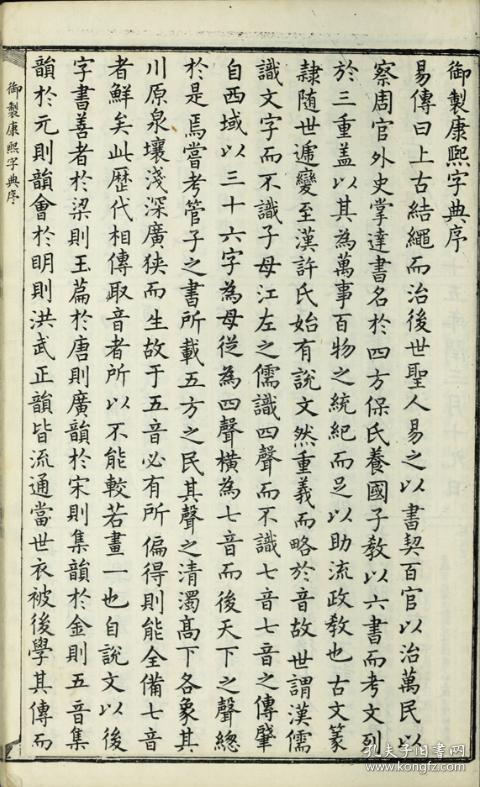 御製康熙字典序
易傳曰上古結繩而治後世聖人易之以書契百官以治萬民以
察周官外史掌達書名於四方保氏養國子教以六書而考文列
於三重盖以其為萬事百物之統紀而足以助流政教也古文篆
隸随世遞變至漢許氏始有說文然重義而略於音故世謂漢儒
識文字而不識子母江左之儒識四聲而不識七音七音之傳肇
自西域以三十六字為母從為四聲橫為七音而後天下之聲總
於是焉嘗考管子之書所載五方之民其聲之清濁高下各象其
川原泉壤淺深廣狹而生故于五音必有所偏得則能全備七音
者鮮矣此歴代相傳取音者所以不能較若畫一也自說文以後
字書善者於梁則玉篇於唐則廣韻於宋則集韻於金則五音集
韻於元則韻會於明則洪武正韻皆流通當世衣被後學其傳而
御製康熙字典序
孔夫子旧书网
www.kongfz.com